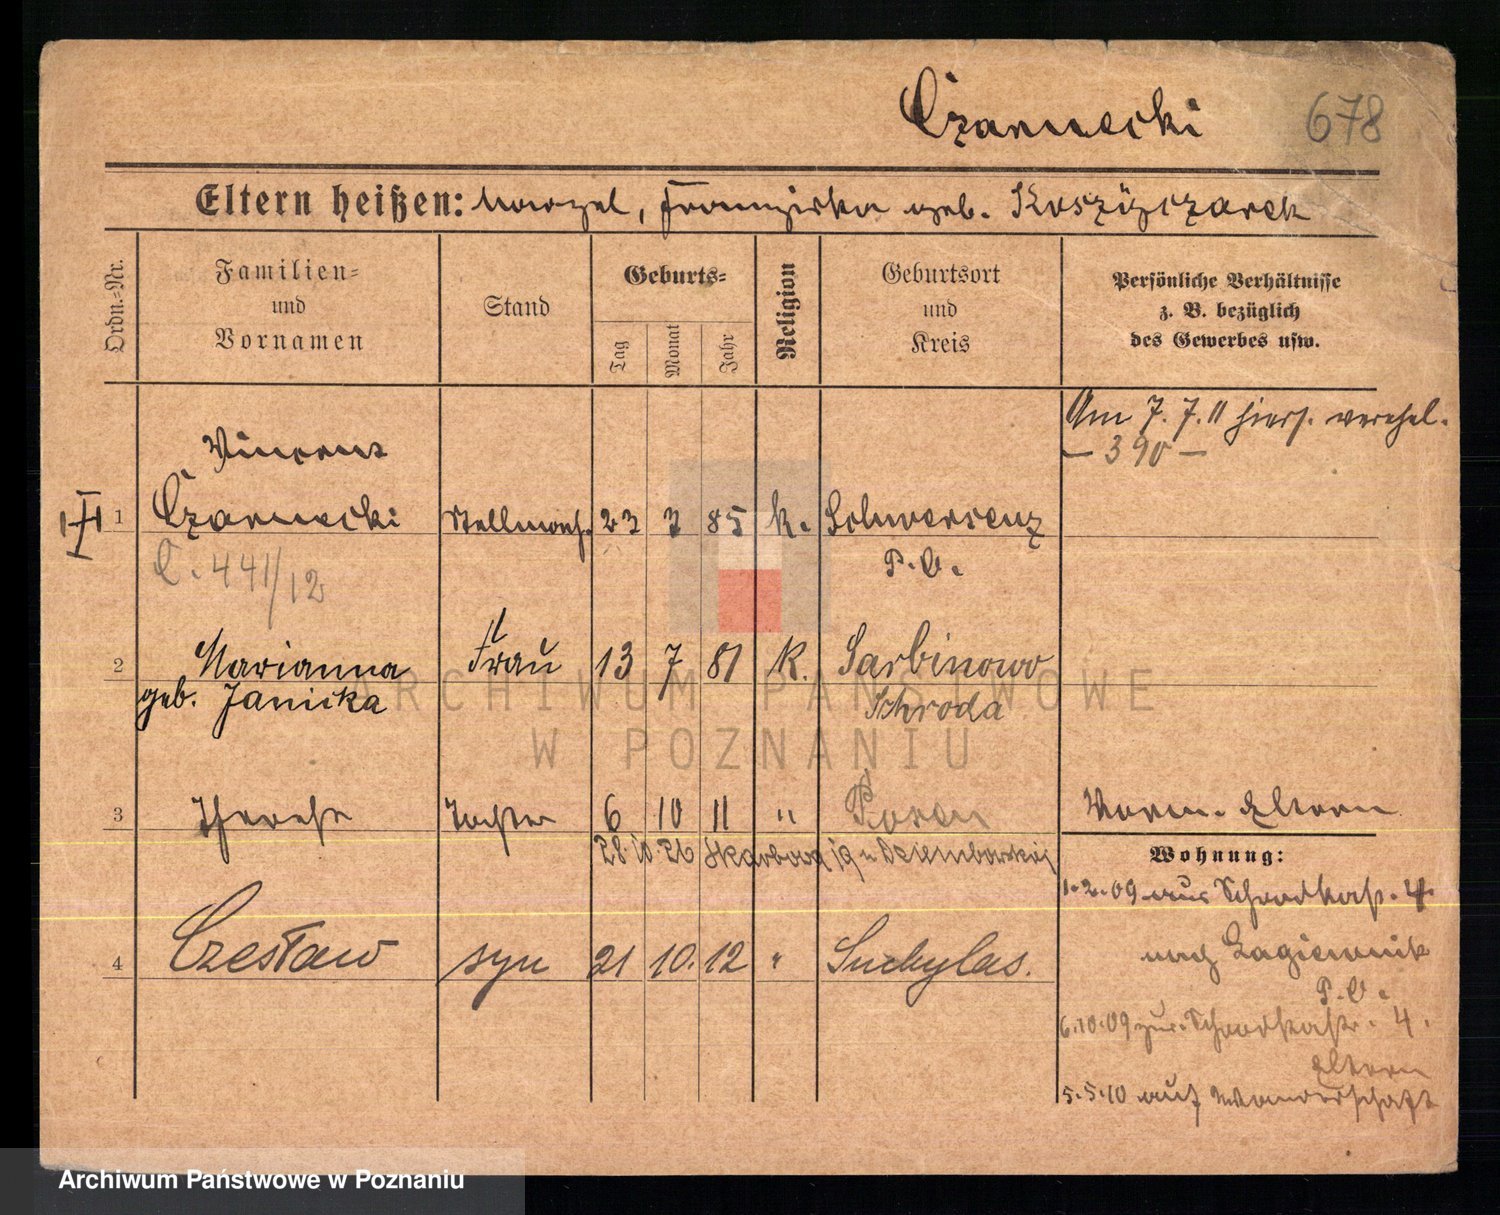 Czarnecki 678
Eltern heißen: Marzel, Franziska geb. Koszyczarek
Ordn.-Nr.
Familien-
und
Vornamen
Stand
Geburts-
Tag
Monat
Jahr
Religion
Geburtsort
und
Kreis
Persönliche Verhältnisse
z. B. bezüglich
des Gewerbes usw.
Am 7. 7. 11 hiers. verehel.
— 390 —
Vincent
1 Czarnecki Stellmach. 23 3 85 k. Schwersenz
P. O.
C. 441/12
2 Marianna Frau 13 7 81 K. Sarbinowo
geb. Janicka Schroda
3 Therese Tochter 6 10 11 " Posen
28 10 26 Skarbowa 19 u Dziembowskiej
4 Czesław syn 21 10. 12 " Suchylas.
Vorm. Eltern
Wohnung:
1. 2. 09 aus Schrodkastr. 4
nach Lagiewnik
P. O.
6. 10. 09 zur. Schrodkastr. 4.
Eltern
5. 5. 10 auf Wanderschaft
ARCHIWUM PAŃSTWOWE
W POZNANIU
Archiwum Państwowe w Poznaniu